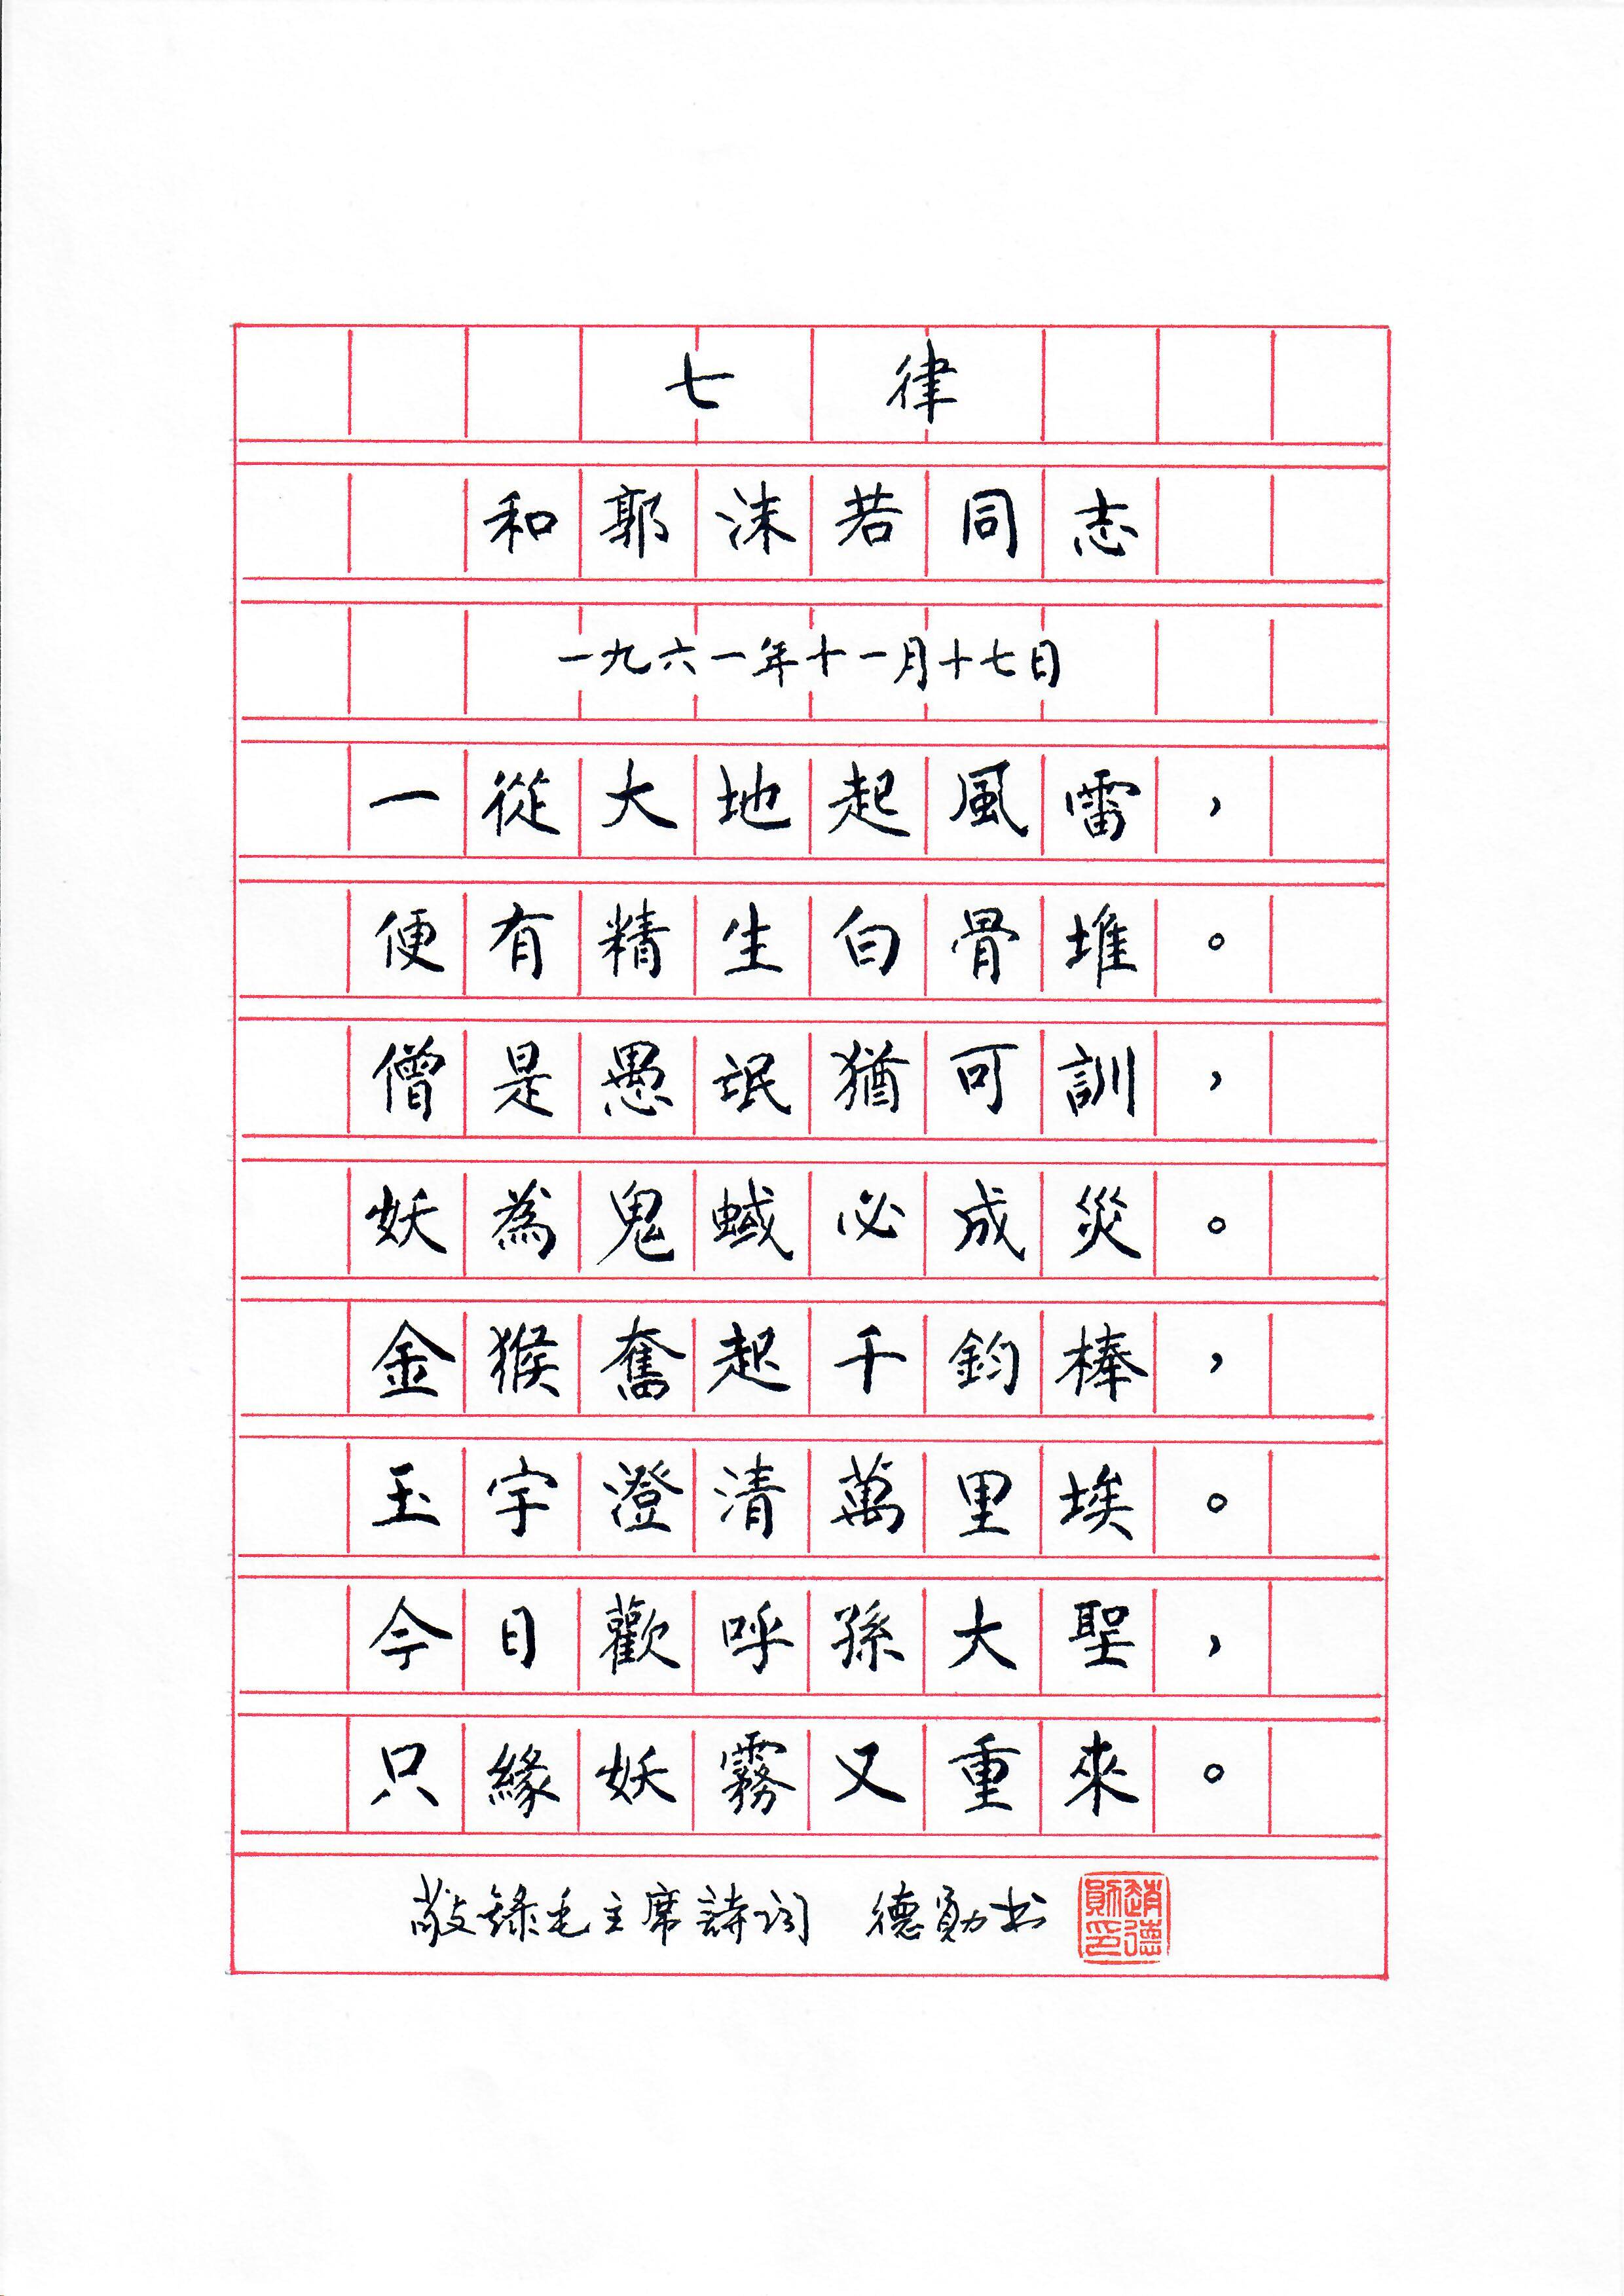 七律
和郭沫若同志
一九六一年十一月十七日
一從大地起風雷，
便有精生白骨堆。
僧是愚氓猶可訓，
妖為鬼蜮必成災。
金猴奮起千鈞棒，
玉宇澄清萬里埃。
今日歡呼孫大聖，
只緣妖霧又重來。
敬錄毛主席詩詞 德勛书
趙德勛印